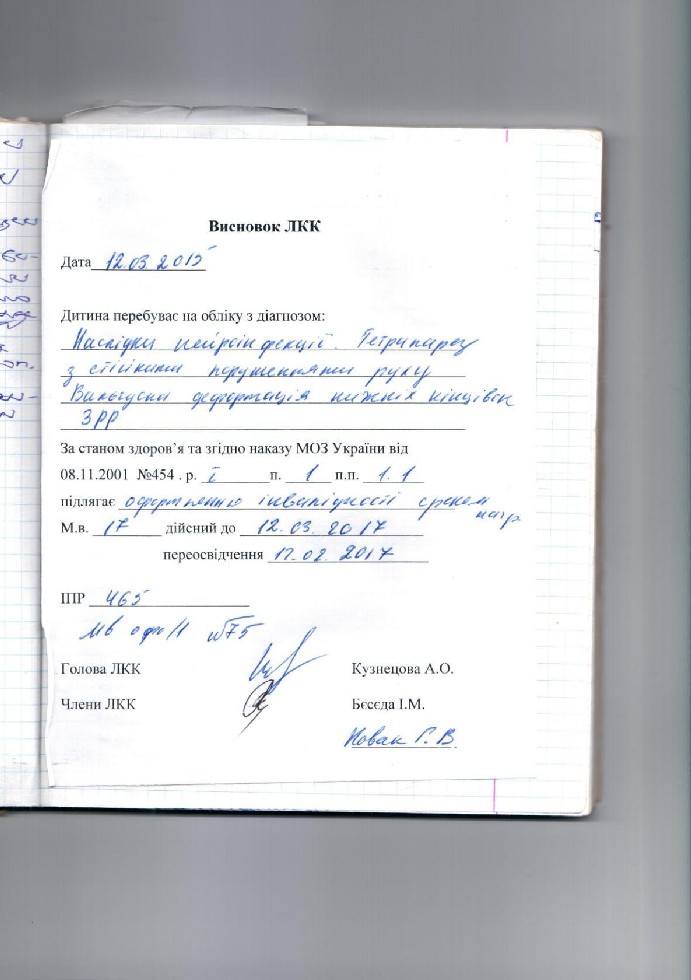 Висновок ЛКК
Дата 12.03 2015
Дитина перебуває на обліку з діагнозом:
Наслідки нейроінфекції. Тетрапарез
з стійкими порушеннями руху
деформація нижніх кінцівок
ЗРР
За станом здоров’я та згідно наказу МОЗ України від
08.11.2001 №454 . р. I п. 1 п.п. 1.1
підлягає оформленню інвалідності
М.в. 17 дійсний до 12.03. 2017
переосвідчення 12.02. 2017
ІПР 465
МВ №75
Голова ЛКК Кузнецова А.О.
Члени ЛКК Бєсєда І.М.
Новак Г. В.